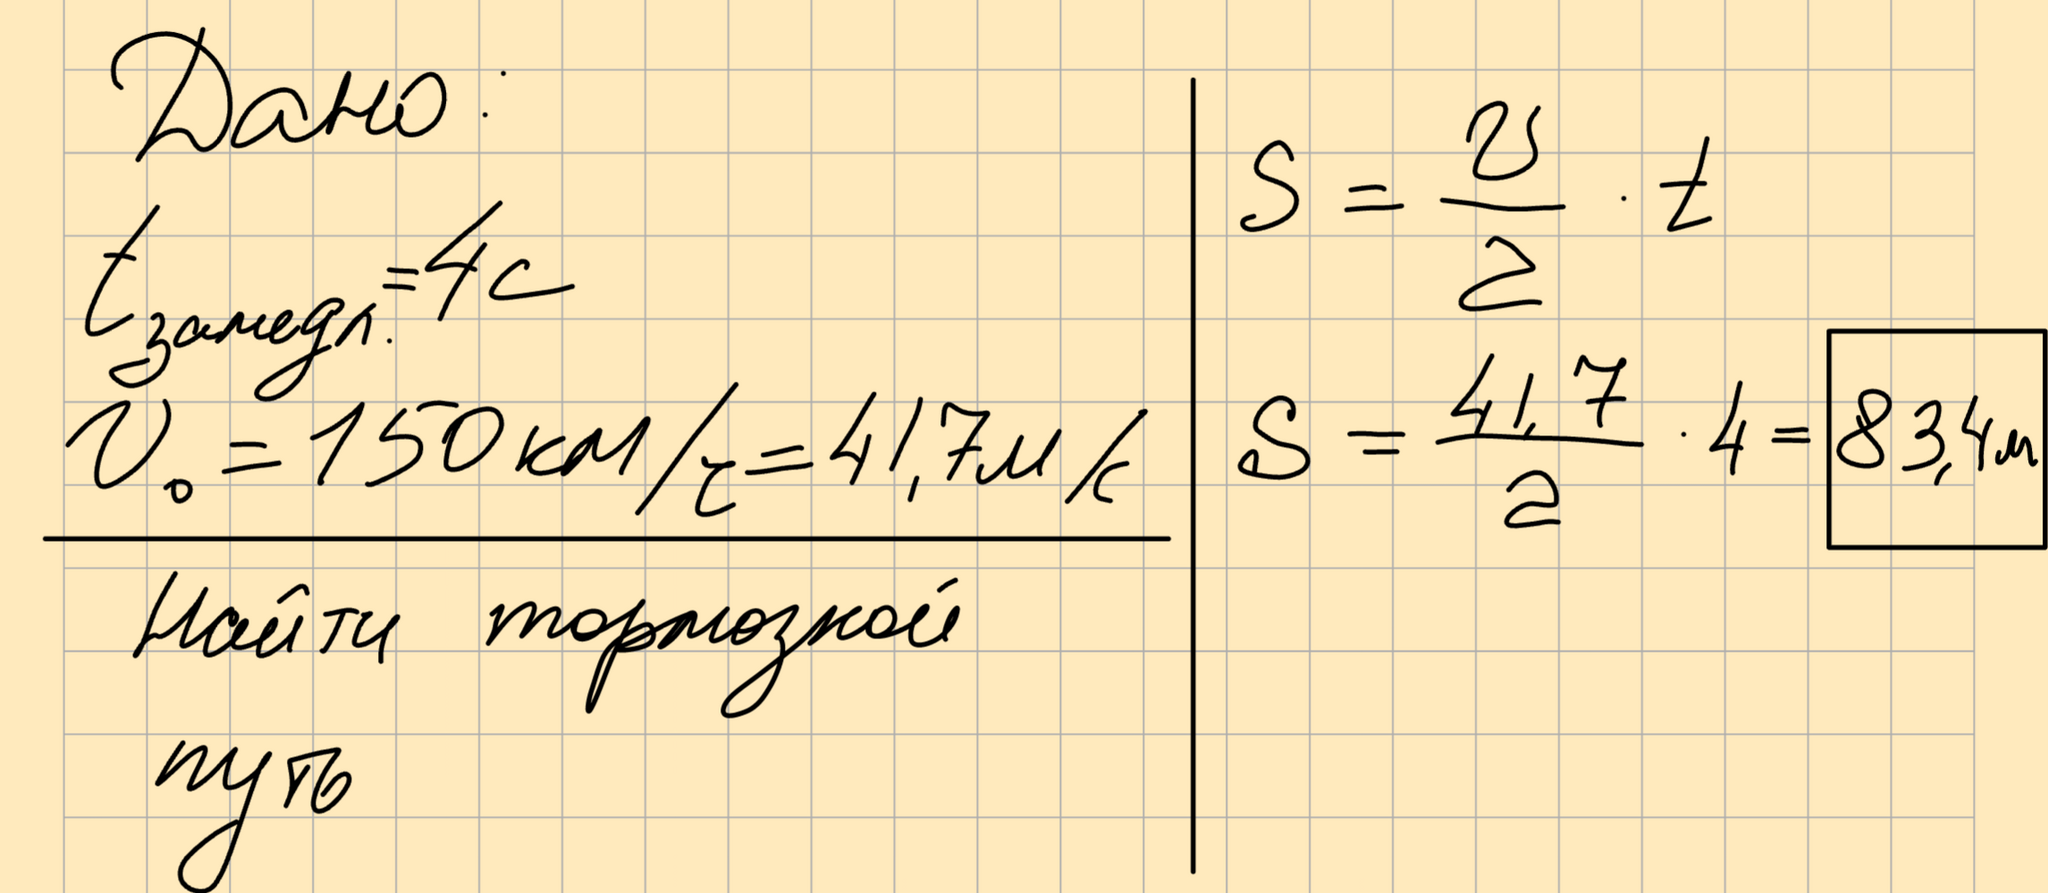 Дано:
tзамедл. = 4с
v₀ = 150 км/ч = 41,7 м/с
Найти тормозной
путь
S = v/2 · t
S = 41,7/2 · 4 = 83,4 м